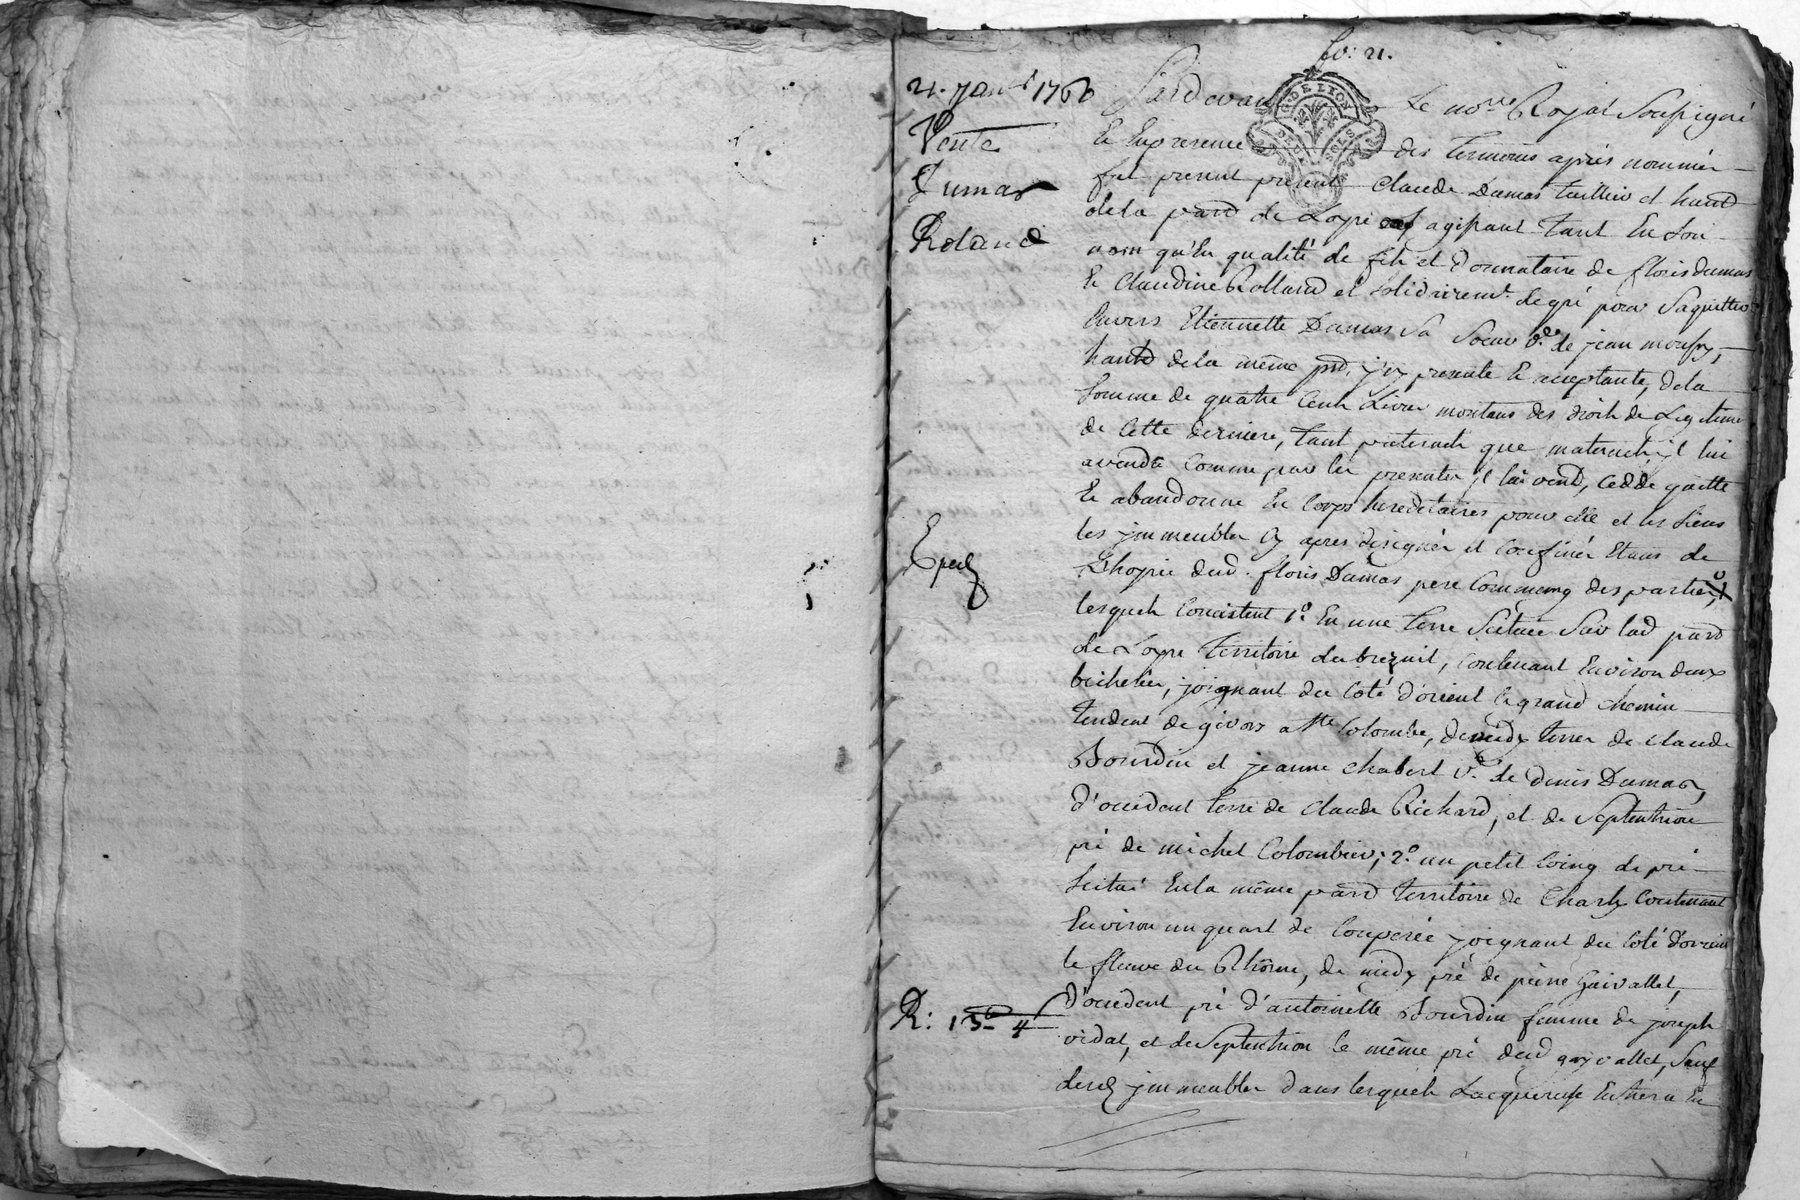 fo: 21.
21. janr 1760
Vente
Dumas
Roland
Exped
R: 13 4
G. DE LYON
DEUX SOLS
Pardevant Le nore Royal Soussigné
Et En presence des temoins après nommés
fut present Claude Dumas habt
de la parr de Loire agissant tant En son
nom qu'En qualité de fils et donnataire de floris dumas
Et Claudine Rolland et solidairemt de gré pour s'aquitter
Envers Etiennette Dumas sa soeur ve de jean
habte de la même par. jcy presente Et acceptante, de la
somme de quatre Cents Livres montans des droits de Legitime
de Cette derniere, tant paternels que maternels jl lui
a vendu Comme par les presentes jl lui vend, Cedde quitte
Et abandonne En Corps hereditaires pour elle et les siens
les jmmeubles cy apres designés et Confinés Etans de
L'hoyrie dud. floris Dumas pere Commung des parties,
lesquels Consistent 1o. En une terre scituée sur lad parr
de Loire territoire du, Contenant Environ deux
bicherées, joignant du Coté d'orient le grand chemin
tendant de givors a Ste Colombe, de midy terres de Claude
Bourdin et jeanne Chabert ve de denis Dumas,
d'occident terre de Claude Richard, et de Septentrion
pré de michel Colombier; 2o. un petit Coing de pré
scitué En la même parr territoire de Charly Contenant
Environ un quart de Couperée joignant du Coté d'orient
le fleuve du Rhône, de midy pré de pierre Gaivallet,
d'occident pré d'antoinette Bourdin femme de joseph
vidal, et de Septentrion le même pré dud gayvallet, sauf
desd jmmeubles dans lesquels L'acquereuse Entrera En